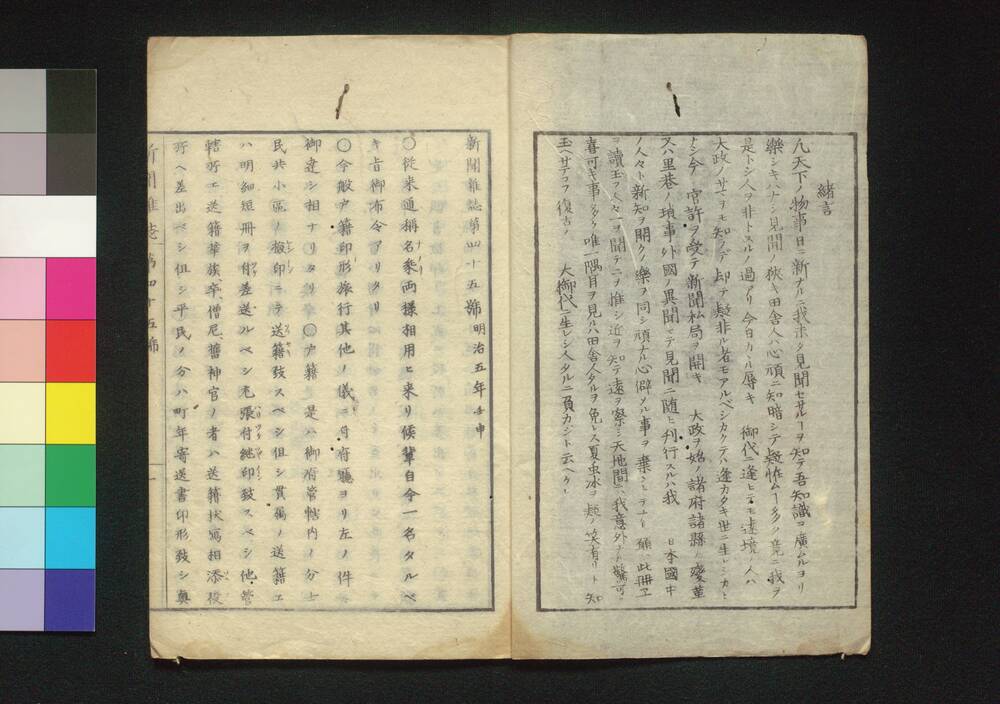 緒言
凡天下ノ物事日ニ新ナルニ我未タ見聞セサルヿヲ知テ吾知識ヲ廣ムルヨリ
樂シキハナシ見聞ノ狹キ田舎人ハ心頑ニ知暗シテ疑惟ムヿ多ク竟ニ我ヲ
是トシ人ヲ非トスルノ過アリ今日カヽル辱キ 御代ニ逢ヒテモ遠境ノ人ハ
大政ノ サマヲモ知ラデ却テ疑非ル者モアルベシカクテハ逢カタキ世ニ生レシカヒ
ナシ今 官許ヲ受テ新聞私局ヲ開キ 大政ヲ始メ諸府諸縣ノ變革
又ハ里巷ノ瑣事外國ノ異聞マデ見聞ニ随ヒ刋行スルハ我 日本國中
ノ人々ト新知ヲ開クノ樂ヲ同シ頑ナル心僻メル事ヲ棄シヒテナリ願ハ此冊ヲ
讀玉フ人々一ヲ聞テ二ヲ推シ近ヲ知テ遠ヲ察シ天地間ニハ我意外ナル驚可ク
喜可キ事多ク唯一隅目ヲ見ルハ田舎人タルヲ免レス夏虫氷ヲ疑ノ笑有リト知
玉ヘサテコソ復古ノ 大御代ニ生レシ人タルニ負カシト云ヘケレ
新聞雜誌第四十五號 明治五年壬申
〇從来通稱名乗両様相用ヒ来リ候輩自今一名タルベ
キ旨御布令アリタリ
〇今般戸籍印形旅行其他ノ儀ニ付府廳ヨリ左ノ件
御達シ相ナリタリ 〇戸籍 是ハ御府管轄内ノ分士
民共小區ノ檢印ニテ送籍致スベシ但シ貫属ノ送籍エ
ハ明細短冊ヲ付差送ルベシ尤張付継印致スベシ他管
轄所エ送籍華族卒僧尼舊神官ノ者ハ送籍状寫相添役
所ヘ差出ベシ但シ平民ノ分ハ町年寄送書印形致シ真
新聞雜誌第四十五號 一